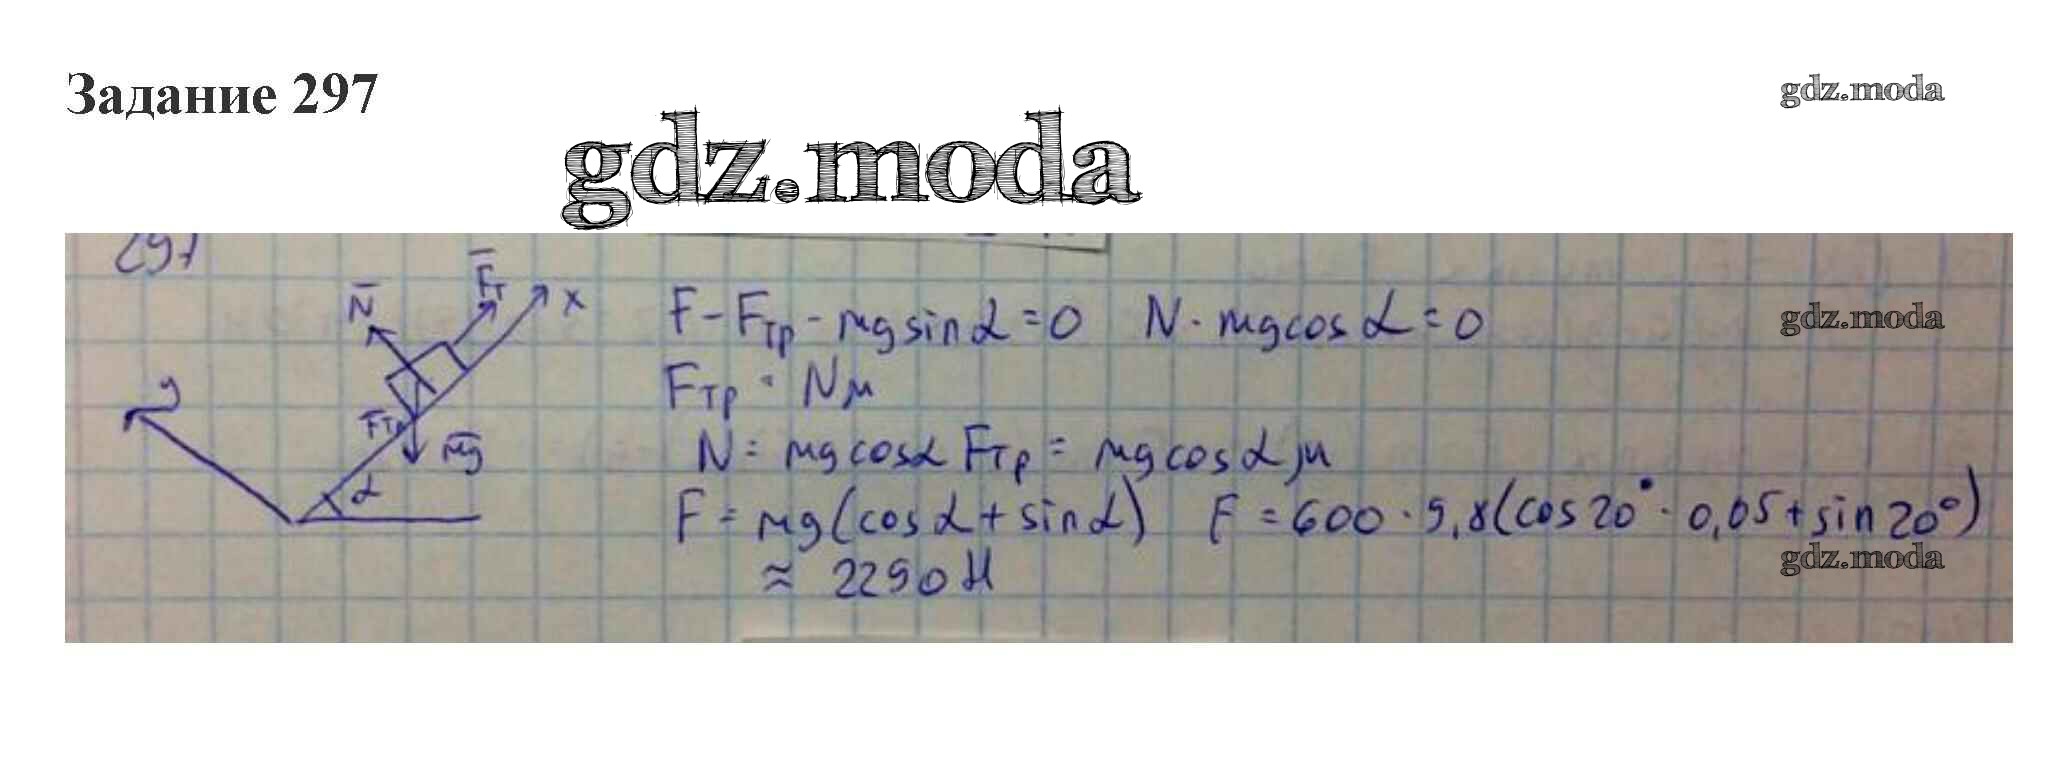 Задание 297
gdz.moda
gdz.moda
297
N
Fт
x
y
Fтр
mg
α
F - Fтр - mg sin α = 0 N - mg cos α = 0
gdz.moda
Fтр = Nμ
N = mg cos α Fтр = mg cos α μ
F = mg (cos α + sin α) F = 600 · 9,8 (cos 20° · 0,05 + sin 20°)
gdz.moda
≈ 2290 Н